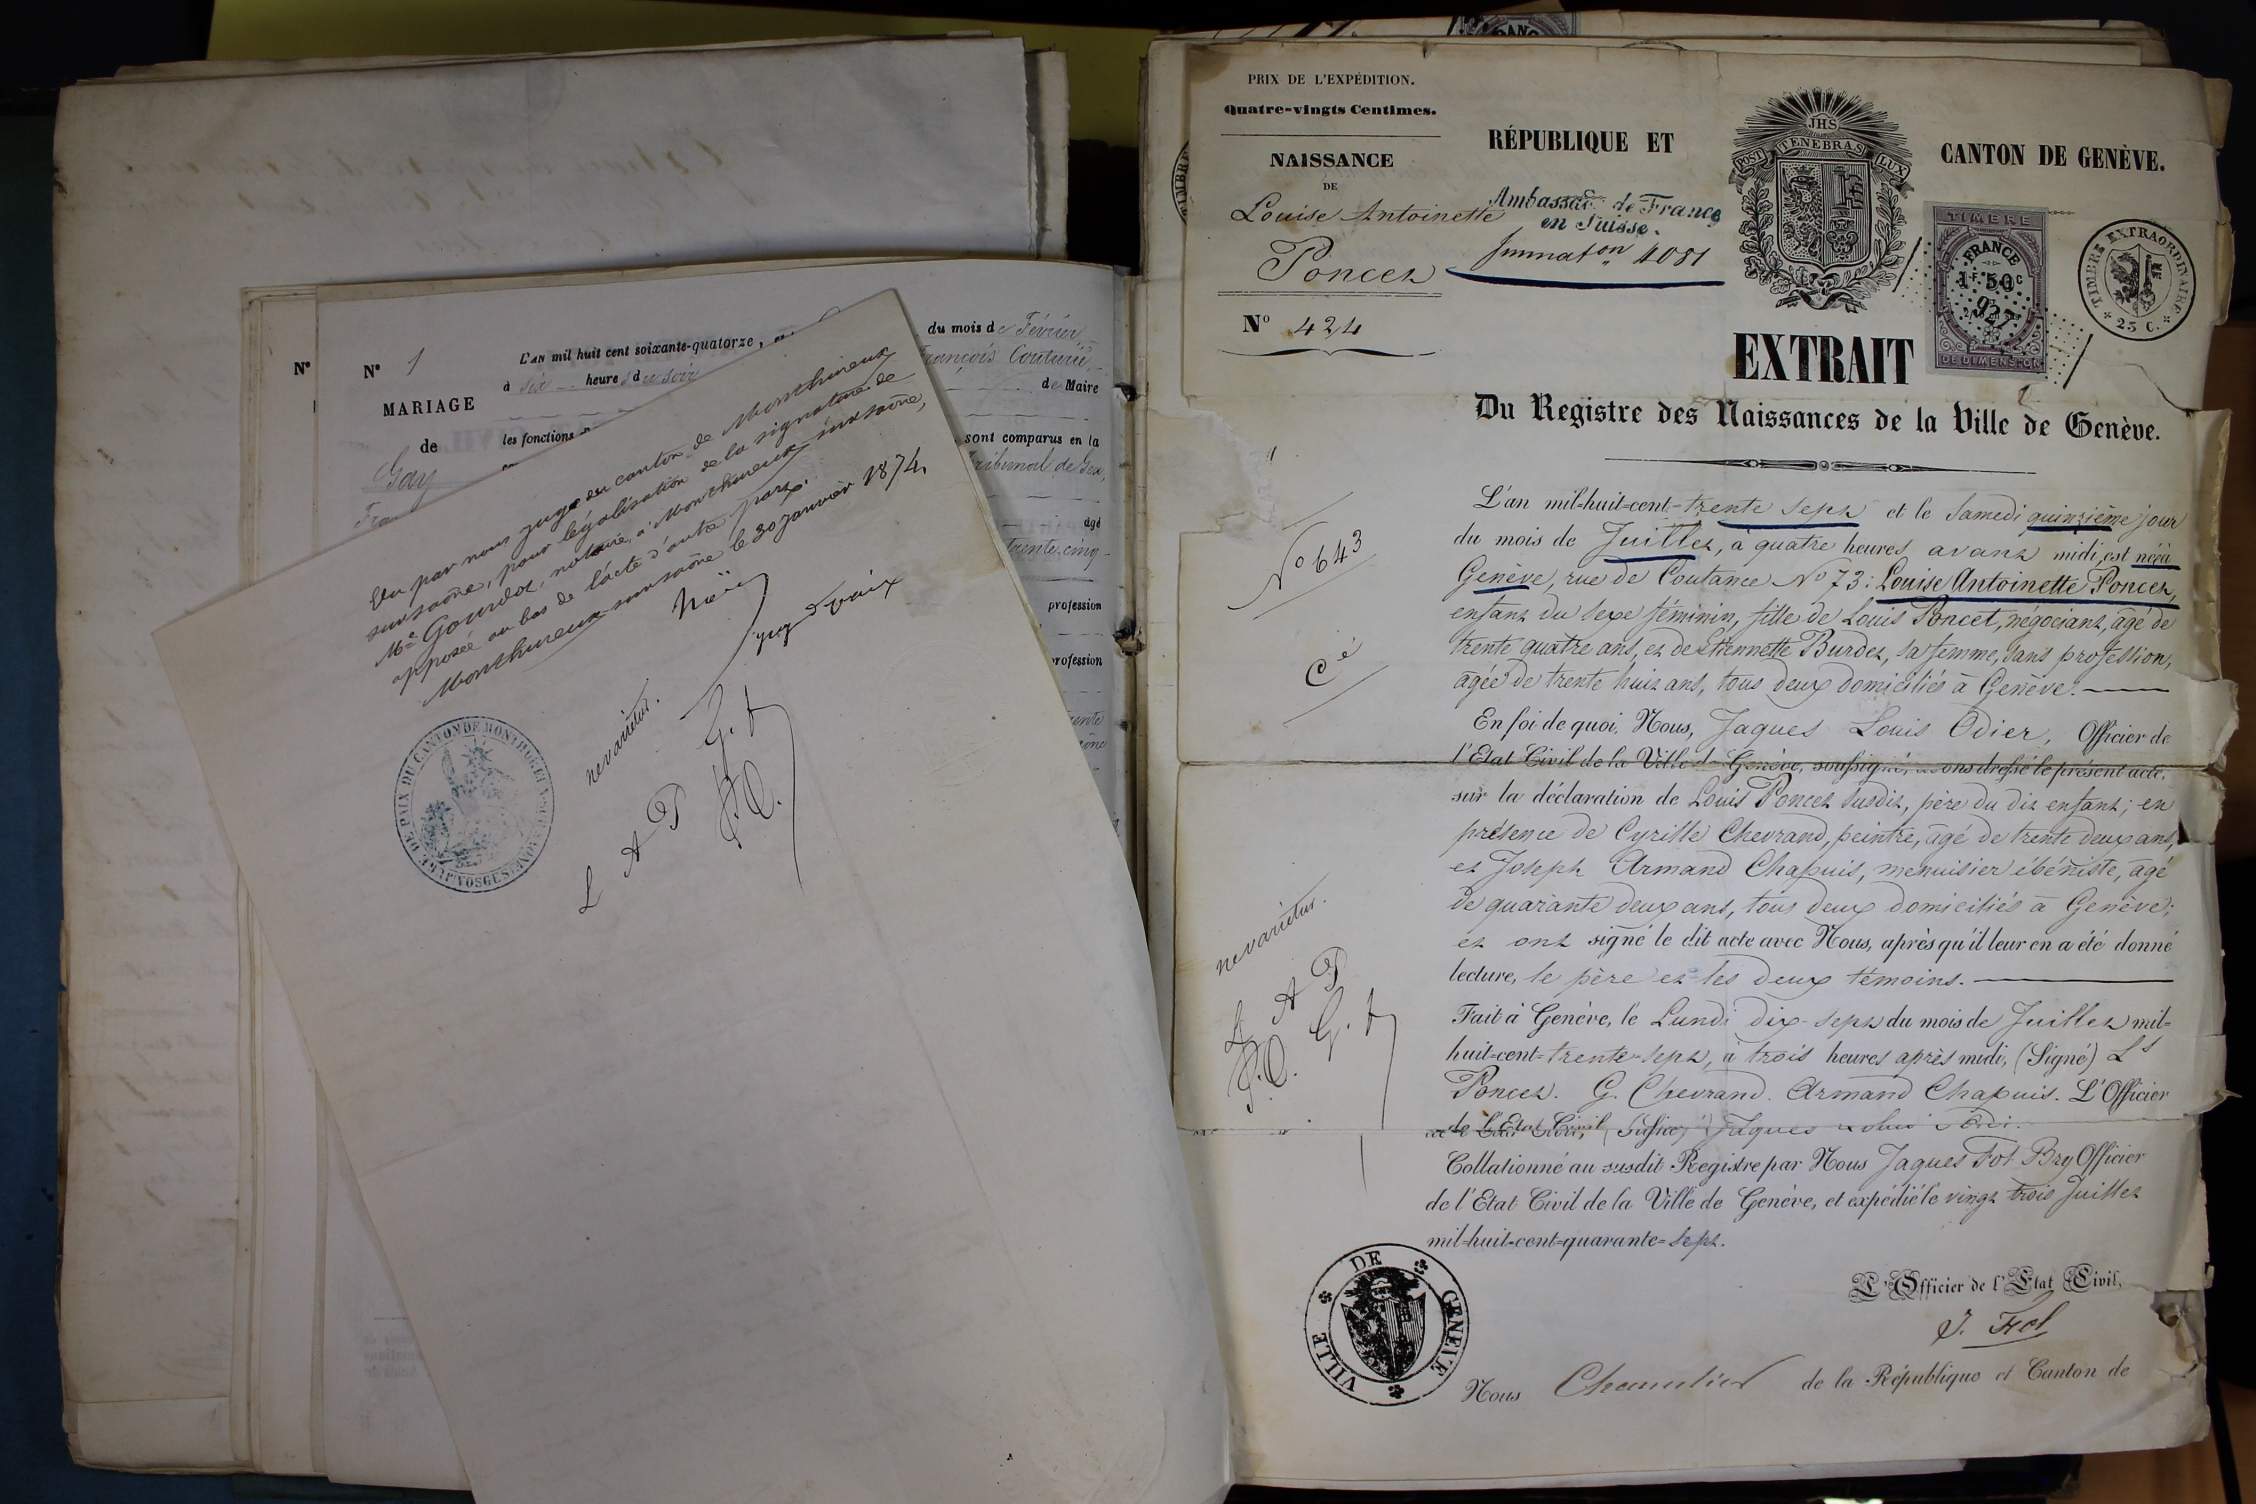 Nº
Nº 1
MARIAGE
de
Gay
L'AN mil huit cent soixante-quatorze,
à six heures du soir
les fonctions
du mois de Février,
François Couturie
de Maire
sont comparus en la
Tribunal de Gex,
âgé
trente-cinq
profession
profession
Vu par nous juge du canton de Monthureux
sur saône, pour légalisation de la signature de
Me Gourdot, notaire, à Monthureux sur saône,
apposée au bas de l'acte d'autre part.
Monthureux sur saône le 30 Janvier 1874,
juge de paix
ne varietur.
L A P G. t
JUSTICE DE PAIX DU CANTON DE MONTHUREUX SUR SAONE (VOSGES)
PRIX DE L'EXPÉDITION.
Quatre-vingts Centimes.
NAISSANCE
DE
Louise Antoinette
Poncet
Nº 424
RÉPUBLIQUE ET
CANTON DE GENÈVE.
JHS
POST TENEBRAS LUX
Ambassade de France
en Suisse.
Immaton 4081
TIMBRE
FRANCE
1F 50C
927
DE DIMENSION
TIMBRE EXTRAORDINAIRE
* 25 C. *
EXTRAIT
Du Registre des Naissances de la Ville de Genève.
Nº 643
Cé
L'an mil-huit-cent-trente sept et le Samedi quinzième jour
du mois de Juillet, à quatre heures avant midi, est née à
Genève, rue de Coutance Nº 73: Louise Antoinette Poncet,
enfant du sexe féminin, fille de Louis Poncet, négociant, âgé de
trente quatre ans, et de Etiennette Burdet, sa femme, sans profession,
âgée de trente huit ans, tous deux domiciliés à Genève.
En foi de quoi, Nous, Jaques Louis Odier, Officier de
l'Etat Civil de la Ville de Genève, soussigné, avons dressé le présent acte,
sur la déclaration de Louis Poncet susdit, père du dit enfant; en
présence de Cyrille Chevrand, peintre, âgé de trente deux ans,
et Joseph Armand Chapuis, menuisier ébéniste, âgé
de quarante deux ans, tous deux domiciliés à Genève;
et ont signé le dit acte avec Nous, après qu'il leur en a été donné
lecture, le père et les deux témoins.
Fait à Genève, le Lundi dix-sept du mois de Juillet mil-
huit-cent-trente-sept, à trois heures après midi, (Signé) Ls
Poncet. G. Chevrand. Armand Chapuis. L'Officier
de l'Etat Civil, (Signé) Jaques Louis Odier.
Collationné au susdit Registre par Nous Jaques Fol Bry Officier
de l'Etat Civil de la Ville de Genève, et expédié le vingt trois Juillet
mil-huit-cent-quarante-sept.
ne varietur.
L A P
G. t
VILLE DE GENEVE
L'Officier de l'Etat Civil,
J. Fol
Nous Chancelier de la République et Canton de